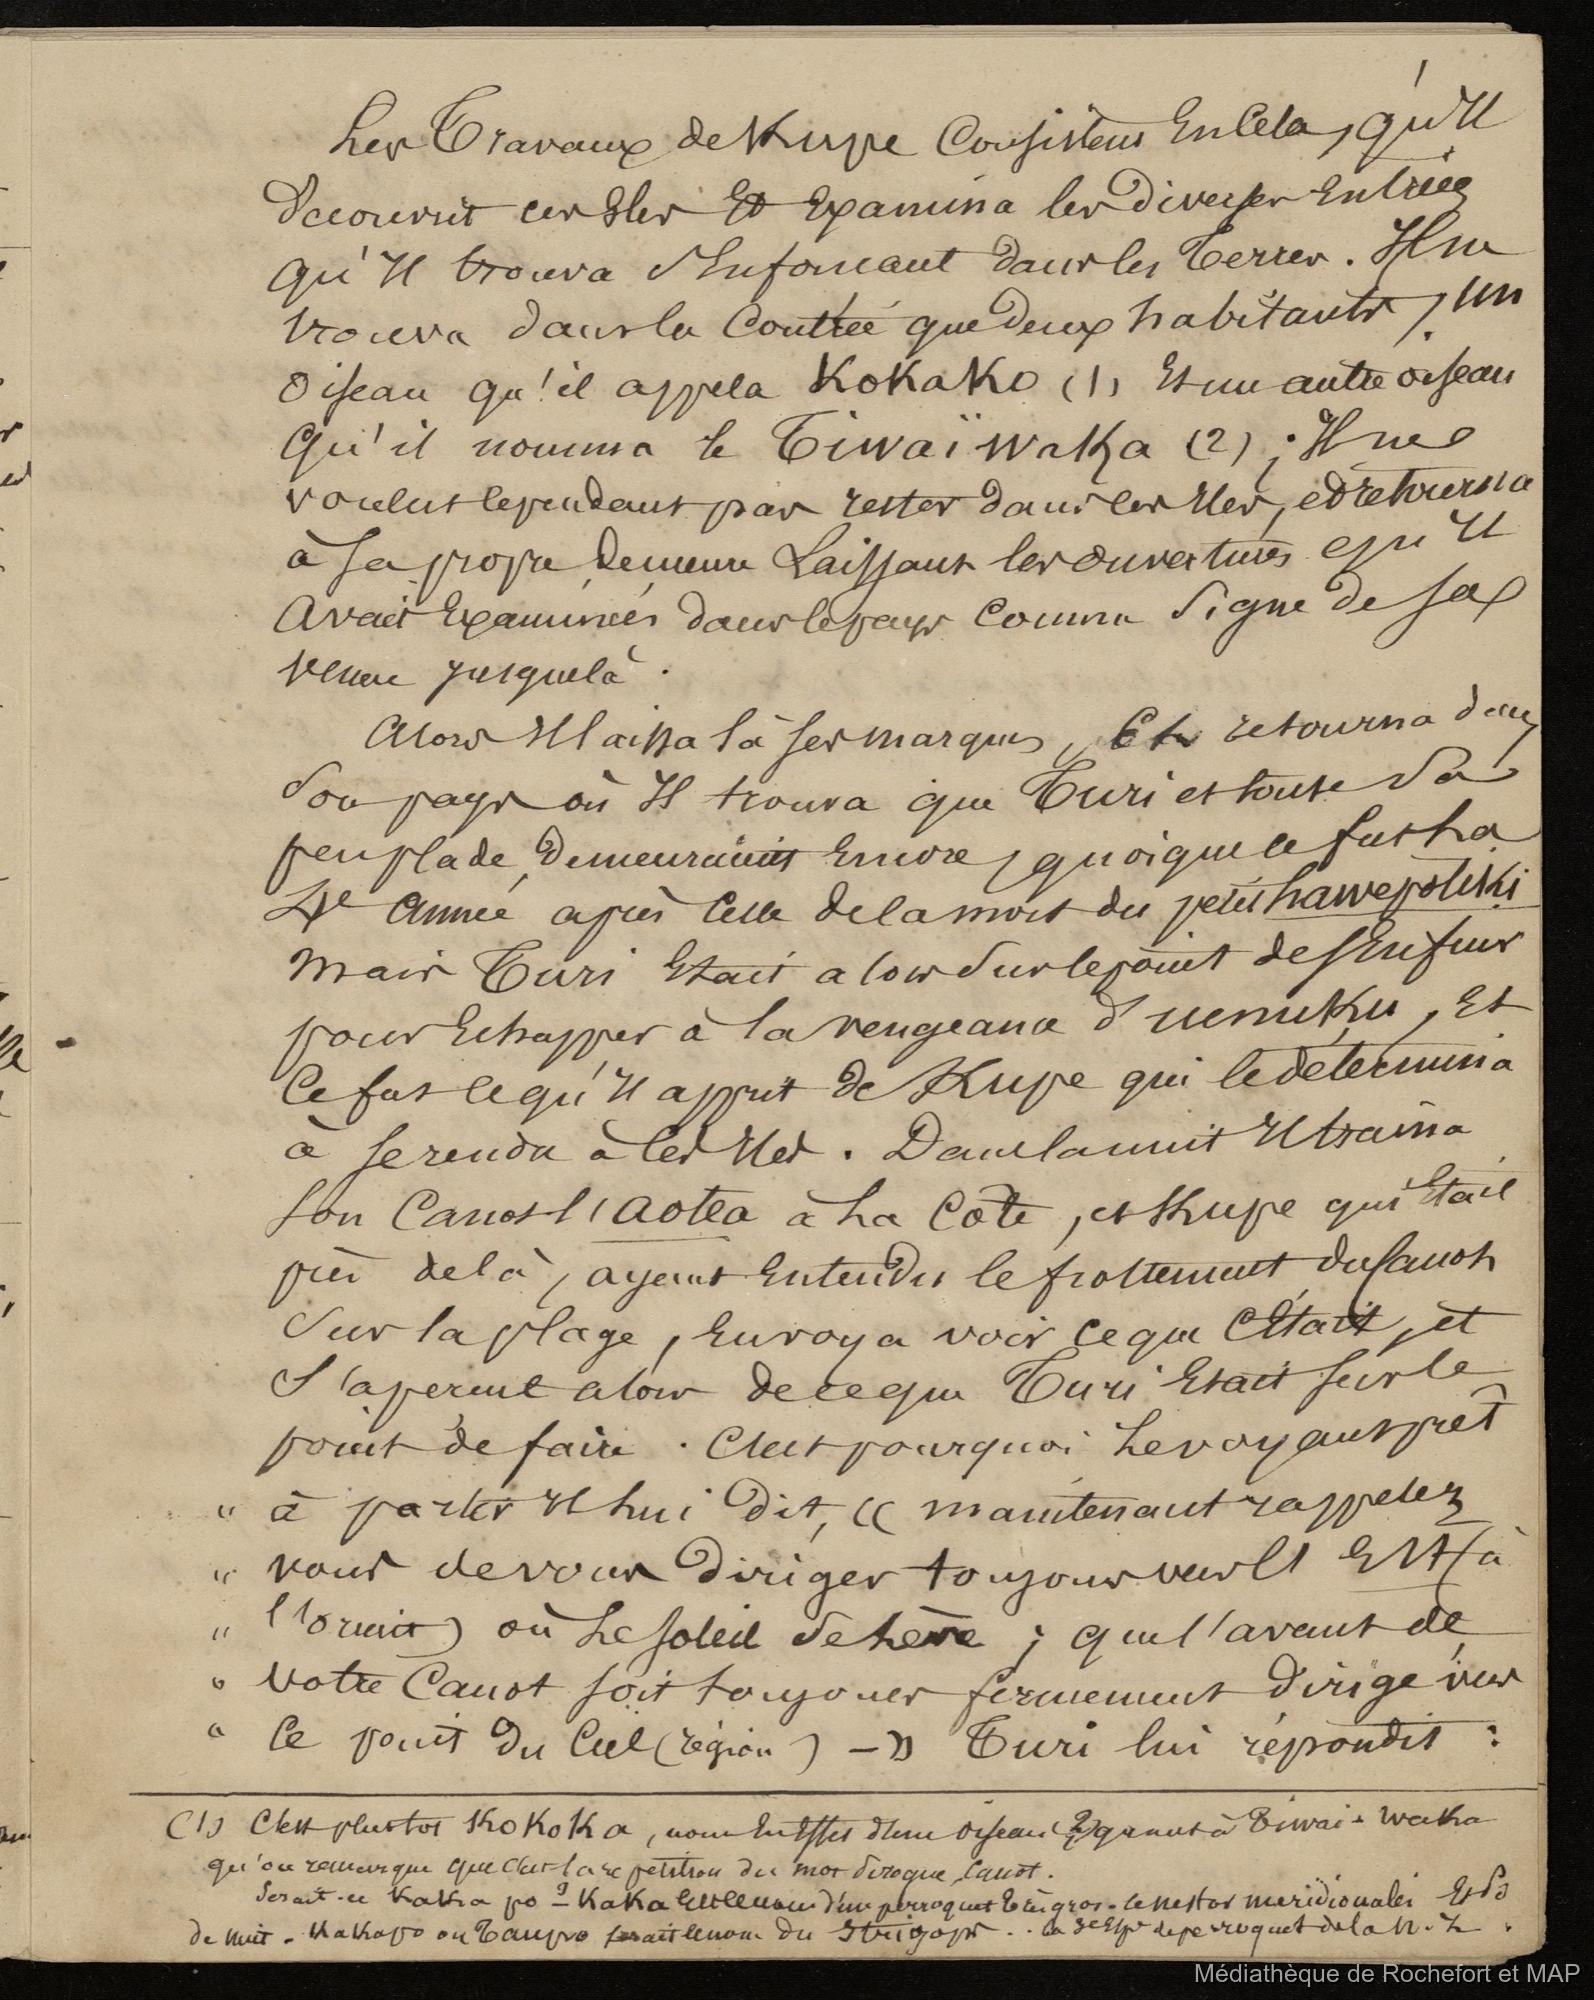 Les Travaux de Kupe Consistent En Cela, qu'Il
decouvrit ces Iles Et Examina les Diverses Entrées
qu'Il trouva s'Enfoncant dans les Terres. Il ne
trouva dans la Contrée que deux habitants, un
oiseau qu'il appela KoKaKo (1) Et un autre oiseau
qu'il nomma le Tiwaïwaka (2) ; Il ne
voulut cependant pas rester dans ces Iles, et retourna
à sa propre Demeure Laissant les ouvertures qu'Il
Avait Examinées dans le pays comme Signe de sa
venue jusque là.
Alors Il laissa là ses marques, Et retourna dans
Son pays où Il trouva que Turi et toute Sa
peuplade, Demeuraient Encore, quoique ce fut la
4e Année après Celle de la mort du petit hawepotiki
Mais Turi Etait alors Sur le point de s'Enfuir
pour Echapper à la vengeance d'uenuku, Et
Ce fut ce qu'Il apprit de Kupe qui le détermina
à se rendre à Ces Iles. Dans la nuit Il traina
son Canot l'Aotea à La Côte, et Kupe qui Etait
près de là, ayant Entendu le frottement du Canot
Sur la plage, Envoya voir ce que C'Etait, et
S'aperçut alors de ce que Turi Etait sur le
point de faire. C'est pourquoi Le voyant prêt
" à partir Il lui Dit, « maintenant rappelez
" vous de vous Diriger toujours vers l'EST (à
" l'orient) où Le soleil se lève ; que l'avant de
" votre Canot soit toujours fermement dirigé vers
" Ce point du Ciel (région) —» Turi lui répondit :
(1) C'est plustot KoKoKa, nom En Effet d'un oiseau (2) quant à Tiwai-waka
qu'on remarque que c'est la repetition du mot Pirogue, Canot.
Serait-ce KaKa po ? KaKa Est le nom d'un perroquet très gros. le nestor meridionalis Et Po
de Nuit. KaKapo ou Taupo serait le nom du Strigops .. la 3e Esp. de perroquet de la N. Z.
Médiathèque de Rochefort et MAP